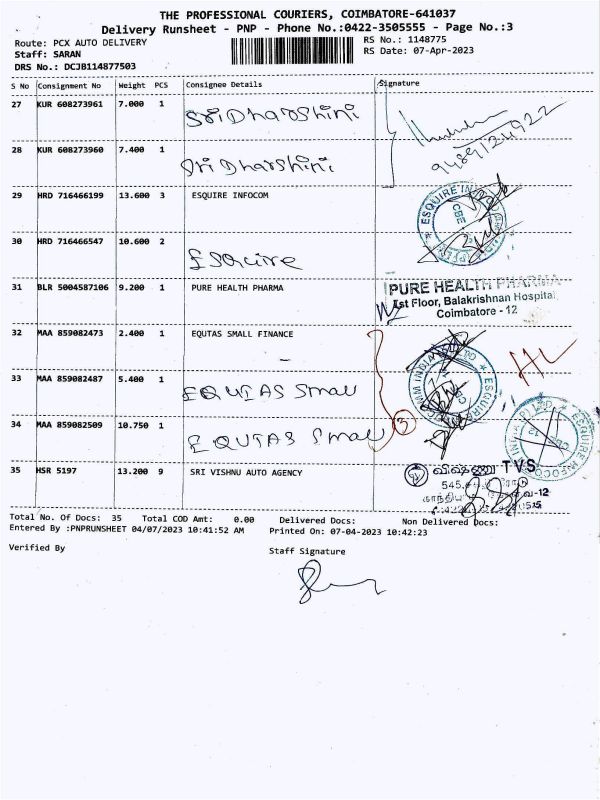 THE PROFESSIONAL COURIERS, COIMBATORE-641037
Delivery Runsheet - PNP - Phone No.:0422-3505555 - Page No.:3
Route: PCX AUTO DELIVERY
RS No.: 1148775
Staff: SARAN
RS Date: 07-Apr-2023
DRS No.: DCJB114877503
S No Consignment No Weight PCS Consignee Details Signature
27 KUR 608273961 7.000 1 Sri Dharshini
9489124922
28 KUR 608273960 7.400 1 Sri Dharshini
29 HRD 716466199 13.600 3 ESQUIRE INFOCOM
ESQUIRE IN
CBE
30 HRD 716466547 10.600 2 Esquire
31 BLR 5004587106 9.200 1 PURE HEALTH PHARMA
PURE HEALTH PHARMA
Ist Floor, Balakrishnan Hospital
Coimbatore - 12
32 MAA 859082473 2.400 1 EQUTAS SMALL FINANCE
33 MAA 859082487 5.400 1 EQUTAS Small
34 MAA 859082509 10.750 1 EQUTAS Small
3
35 HSR 5197 13.200 9 SRI VISHNU AUTO AGENCY
விஷ்ணு TVS
545,
Total No. Of Docs: 35 Total COD Amt: 0.00 Delivered Docs: Non Delivered Docs:
Entered By :PNPRUNSHEET 04/07/2023 10:41:52 AM Printed On: 07-04-2023 10:42:23
Verified By Staff Signature